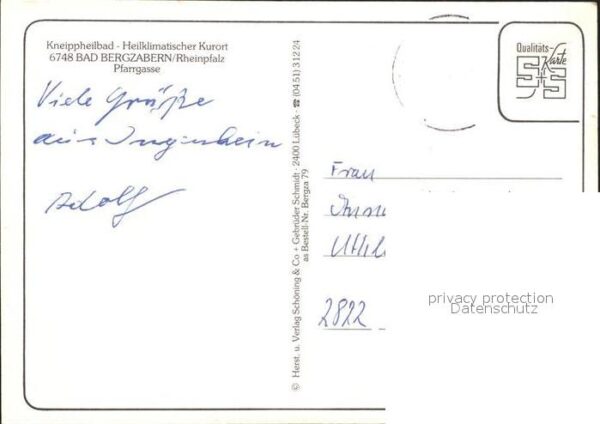 Kneippheilbad - Heilklimatischer Kurort
6748 BAD BERGZABERN/Rheinpfalz
Pfarrgasse
Viele Grüße
aus Ingenheim
Adolf
© Herst. u. Verlag Schöning & Co + Gebrüder Schmidt · 2400 Lübeck · ☎ (04 51) 3 12 24
as Bestell-Nr. Bergza 79
Qualitäts-
Karte
S+S
Frau
2822
privacy protection
Datenschutz